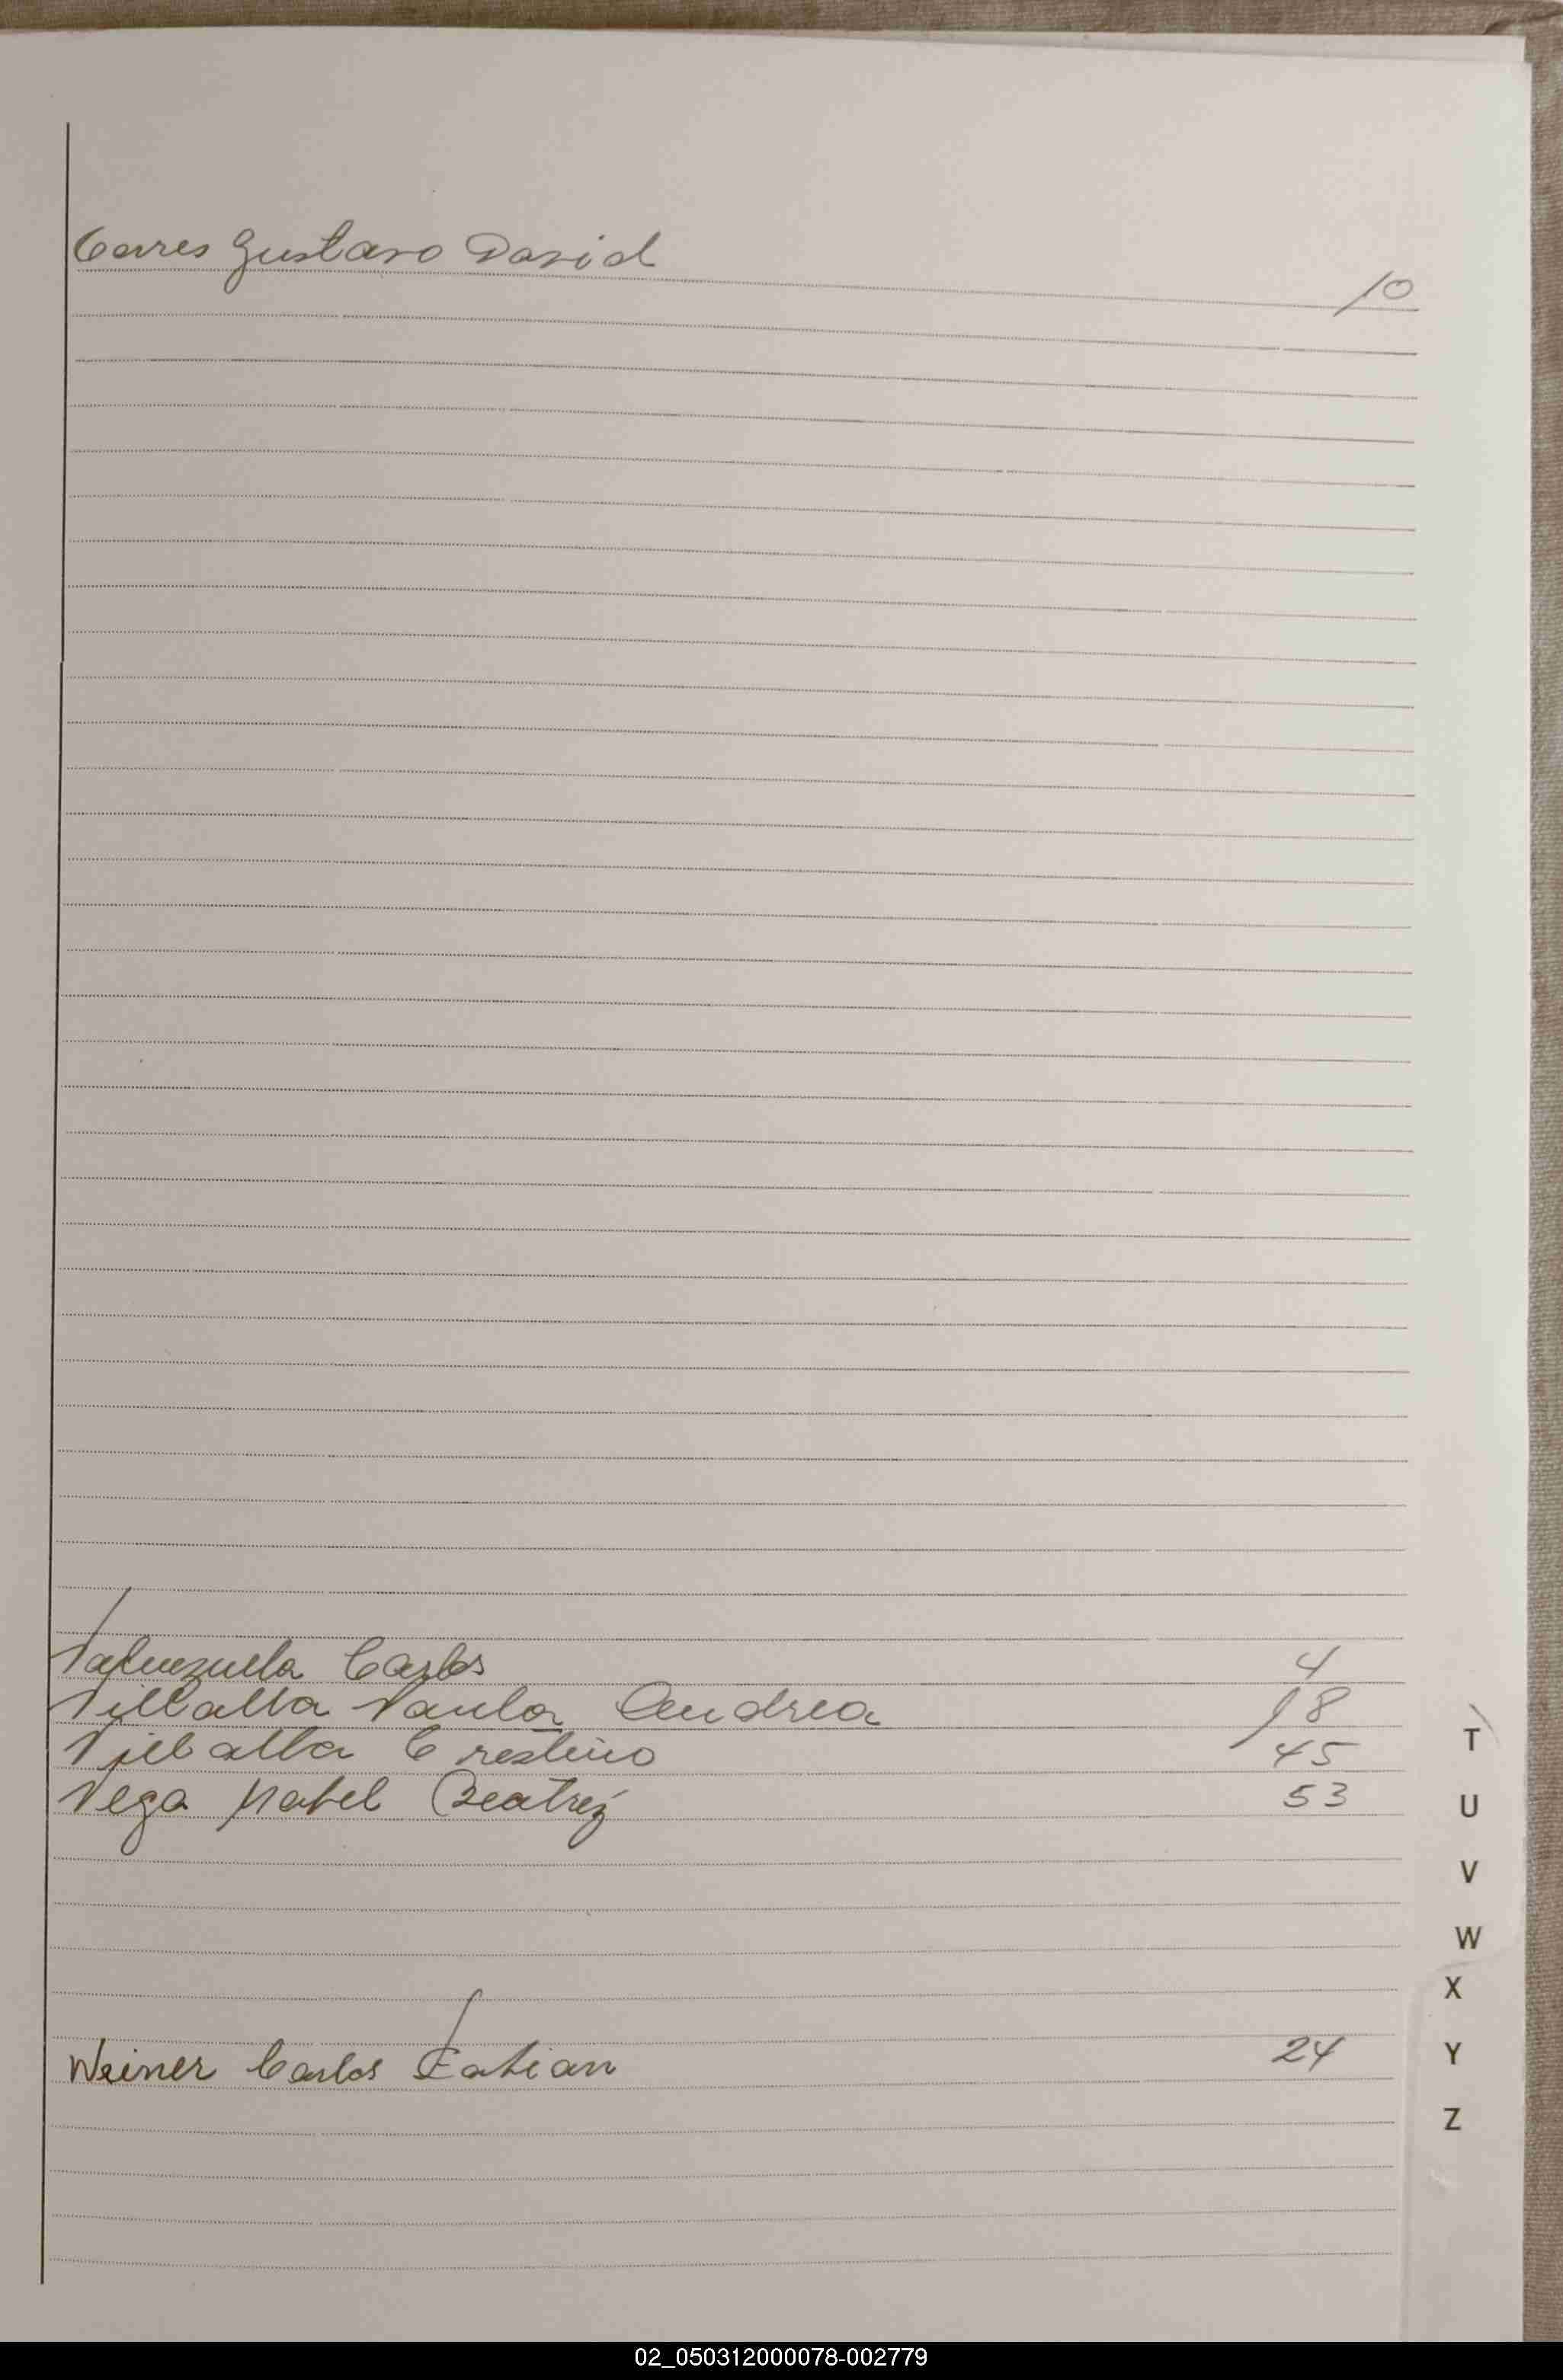 Torres Gustavo David 10
Valenzuela Carlos 4
Villalba Paula Andrea 18
Villalba Cristino 45
Vega Mabel Beatriz 53
Weiner Carlos Fabian 24
T
U
V
W
X
Y
Z
02_050312000078-002779